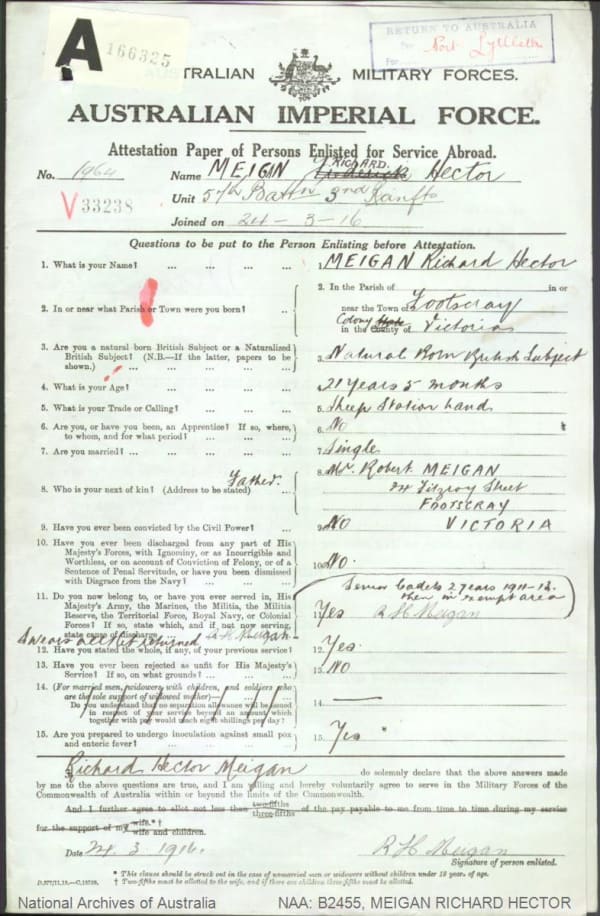 A 166325
RETURN TO AUSTRALIA
Per Port Lyttelton
For
AUSTRALIAN MILITARY FORCES.
AUSTRALIAN IMPERIAL FORCE.
Attestation Paper of Persons Enlisted for Service Abroad.
No. 1964 Name MEIGAN RICHARD. Frederick Hector
Unit 57th Battn 3rd Reinfts
V 33238
Joined on 24 - 3 - 16
Questions to be put to the Person Enlisting before Attestation.
1. What is your Name? ... ... ... ... 1. MEIGAN Richard Hector
2. In or near what Parish or Town were you born? ... 2. In the Parish of in or
near the Town of Footscray
Colony State
in the County of Victoria
3. Are you a natural born British Subject or a Naturalized
British Subject? (N.B.—If the latter, papers to be
shown.) ... ... ... ... ... 3. Natural Born British Subject
4. What is your Age? ... ... ... ... 4. 21 Years 5 months
5. What is your Trade or Calling? ... ... ... 5. Sheep Station hand
6. Are you, or have you been, an Apprentice? If so, where,
to whom, and for what period? ... ... ... 6. No
7. Are you married? ... ... ... ... 7. Single
8. Who is your next of kin? (Address to be stated) ... Father. 8. Mr. Robert MEIGAN
24 Fitzroy Street
FOOTSCRAY
VICTORIA
9. Have you ever been convicted by the Civil Power? ... 9. No
10. Have you ever been discharged from any part of His
Majesty's Forces, with Ignominy, or as Incorrigible and
Worthless, or on account of Conviction of Felony, or of a
Sentence of Penal Servitude, or have you been dismissed
with Disgrace from the Navy? ... ... ... 10. No.
Senior Cadets 2 years 1911-12.
then in exempt area
11. Do you now belong to, or have you ever served in, His
Majesty's Army, the Marines, the Militia, the Militia
Reserve, the Territorial Force, Royal Navy, or Colonial
Forces? If so, state which, and if not now serving,
state cause of discharge ... R H Meigan 11. Yes R H Meigan
12. Have you stated the whole, if any, of your previous service? 12. Yes.
13. Have you ever been rejected as unfit for His Majesty's
Service? If so, on what grounds? ... ... 13. NO
14. (For married men, widowers with children, and soldiers who
are the sole support of widowed mother)—
Do you understand that no separation allowance will be issued
in respect of your service beyond an amount which
together with pay would reach eight shillings per day? 14. —
15. Are you prepared to undergo inoculation against small pox
and enteric fever? ... ... ... ... 15. Yes
I, Richard Hector Meigan do solemnly declare that the above answers made
by me to the above questions are true, and I am willing and hereby voluntarily agree to serve in the Military Forces of the
Commonwealth of Australia within or beyond the limits of the Commonwealth.
And I further agree to allot not less than two-fifths three-fifths of the pay payable to me from time to time during my service
for the support of my wife.*† wife and children.
Date 24. 3. 1916. R H Meigan
Signature of person enlisted.
* This clause should be struck out in the case of unmarried men or widowers without children under 18 years of age.
† Two-fifths must be allotted to the wife, and if there are children three-fifths must be allotted.
National Archives of Australia NAA: B2455, MEIGAN RICHARD HECTOR